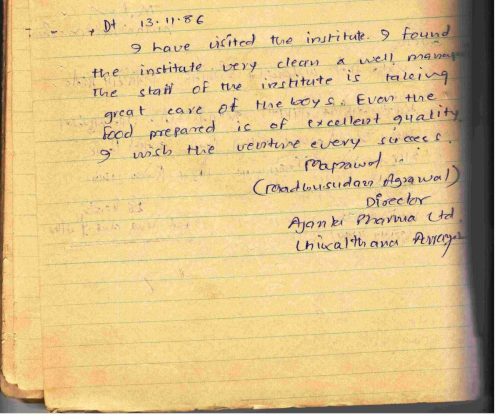 Dt. 13.11.86
I have visited the institute. I found
the institute very clean & well manage
The staff of the institute is taking
great care of the boys. Even the
food prepared is of excellent quality
I wish the venture every success.
(Madhusudan Agrawal)
Director
Ajanki Pharma Ltd.
Chikalthana